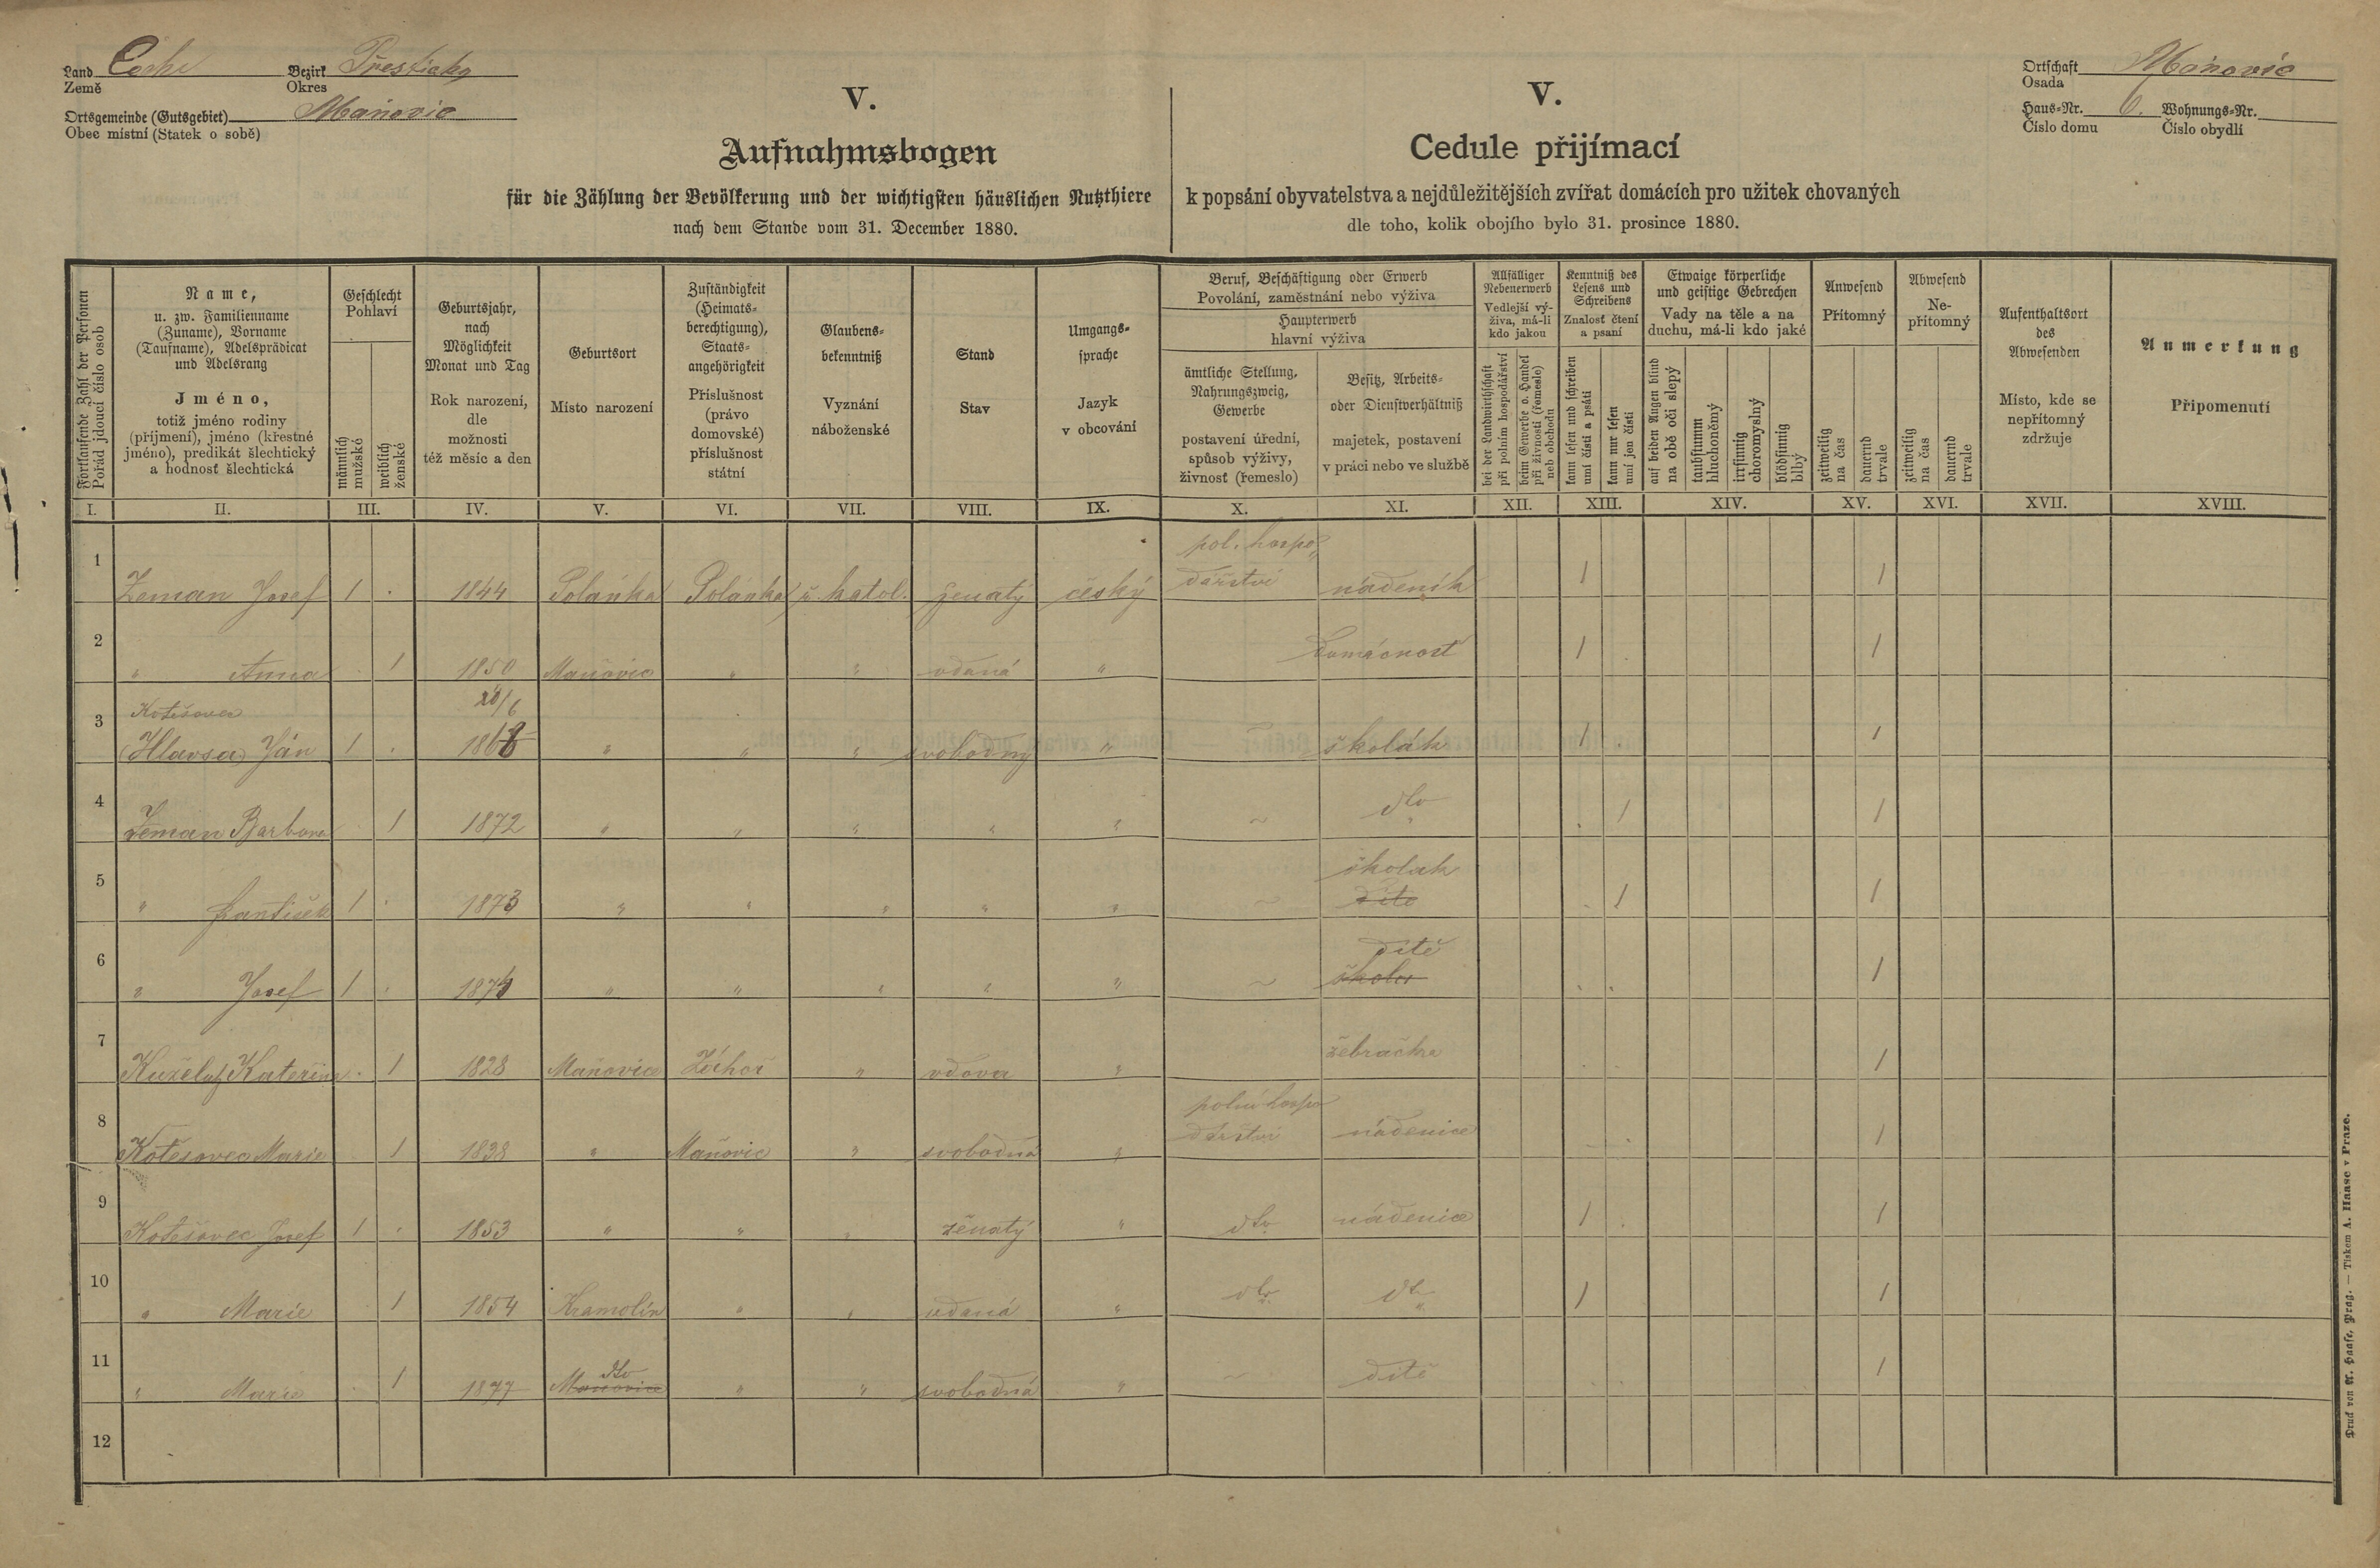 Land Čechy Bezirk Přesticky
Země Okres
Ortsgemeinde (Gutsgebiet) Maňovic
Obec místní (Statek o sobě)
V.
Aufnahmsbogen
für die Zählung der Bevölkerung und der wichtigsten häuslichen Nutzthiere
nach dem Stande vom 31. December 1880.
V.
Cedule přijímací
k popsání obyvatelstva a nejdůležitějších zvířat domácích pro užitek chovaných
dle toho, kolik obojího bylo 31. prosince 1880.
Ortschaft Maňovic
Osada
Haus-Nr. 6. Wohnungs-Nr.
Číslo domu Číslo obydlí
Fortlaufende Zahl der Personen
Pořád jdoucí číslo osob
Name,
u. zw. Familienname
(Zuname), Vorname
(Taufname), Adelsprädicat
und Adelsrang
Jméno,
totiž jméno rodiny
(příjmení), jméno (křestné
jméno), predikát šlechtický
a hodnosť šlechtická
Geschlecht
Pohlaví
männlich
mužské
weiblich
ženské
Geburtsjahr,
nach
Möglichkeit
Monat und Tag
Rok narození,
dle
možnosti
též měsíc a den
Geburtsort
Místo narození
Zuständigkeit
(Heimats-
berechtigung),
Staats-
angehörigkeit
Příslušnost
(právo
domovské)
příslušnost
státní
Glaubens-
bekenntniß
Vyznání
náboženské
Stand
Stav
Umgangs-
sprache
Jazyk
v obcování
Beruf, Beschäftigung oder Erwerb
Povolání, zaměstnání nebo výživa
Haupterwerb
hlavní výživa
ämtliche Stellung,
Nahrungszweig,
Gewerbe
postavení úřední,
spůsob výživy,
živnosť (řemeslo)
Besitz, Arbeits-
oder Dienstverhältniß
majetek, postavení
v práci nebo ve službě
Allfälliger
Nebenerwerb
Vedlejší vý-
živa, má-li
kdo jakou
bei der Landwirthschaft
při polním hospodářství
beim Gewerbe o. Handel
při živnosti (řemesle)
neb obchodu
Kenntniß des
Lesens und
Schreibens
Znalosť čtení
a psaní
kann lesen und schreiben
umí čísti a psáti
kann nur lesen
umí jen čísti
Etwaige körperliche
und geistige Gebrechen
Vady na těle a na
duchu, má-li kdo jaké
auf beiden Augen blind
na obě oči slepý
taubstumm
hluchoněmý
irrsinnig
choromyslný
blödsinnig
blbý
Anwesend
Přítomný
zeitweilig
na čas
dauernd
trvale
Abwesend
Ne-
přítomný
zeitweilig
na čas
dauernd
trvale
Aufenthaltsort
des
Abwesenden
Místo, kde se
nepřítomný
zdržuje
Anmerkung
Připomenutí
I. II. III. IV. V. VI. VII. VIII. IX. X. XI. XII. XIII. XIV. XV. XVI. XVII. XVIII.
pol. hospo„
1 Zeman Josef 1 . 1844 Polánka Polánka ř. katol. ženatý český dářství nádeník 1 1
2 " Anna . 1 1850 Maňovic " " vdaná " Domácnosť 1 . 1
Kotěšovec 20/6
3 (Hlavsa) Ján 1 . 1868 " " " svobodný " ~ školák 1 . 1
4 Zeman Barbora . 1 1872 " " " " " ~ dto . 1 1
školak
5 " František 1 . 1873 " " " " " ~ dítě . 1 1
dítě
6 " Josef 1 . 1874 " " " " " ~ . . 1
7 Kateřina . 1 1828 Maňovice " vdova " žebračka . . 1
polní hospo
8 Kotěšovec Marie 1 1838 " Maňovic " svobodná " dářství nádenice . . 1
9 Kotěšovec Josef 1 . 1853 " " " ženatý " dto nádenice 1 . 1
10 " Marie . 1 1854 Kramolín " " vdaná " dto dto 1 1
dto
11 " Marie . 1 1877 Maňovice " " svobodná " ~ dítě . . 1
12
Druck von A. Haase, Prag. — Tiskem A. Haase v Praze.